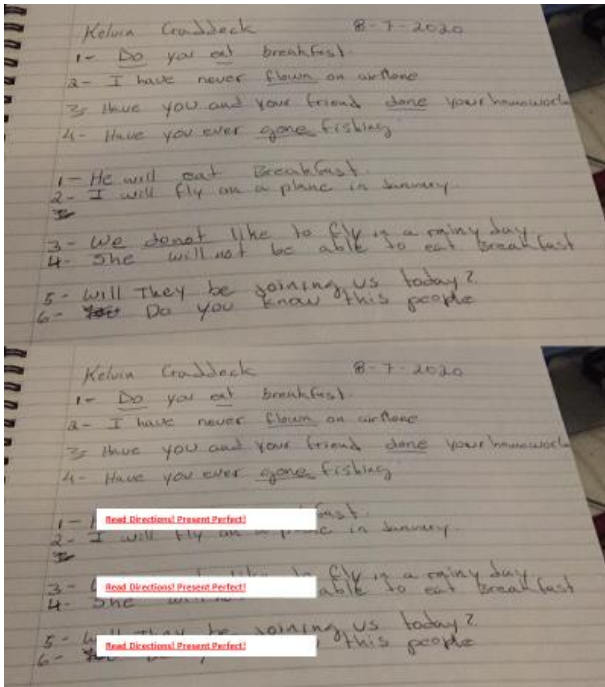 Kelvin Craddock 8-7-2020
1- Do you eat breakfast.
2- I have never flown on airplane
3- Have you and your friend done your homework
4- Have you ever gone fishing
1- He will eat Breakfast.
2- I will fly on a plane in January.
3- We donot like to fly in a rainy day
4- She will not be able to eat Breakfast
5- Will They be joining us today?
6- Do you know this people
Kelvin Craddock 8-7-2020
1- Do you eat breakfast.
2- I have never flown on airplane
3- Have you and your friend done your homework
4- Have you ever gone fishing
1- Read Directions! Present Perfect!
2- I will fly on a plane in January.
3- Read Directions! Present Perfect! to fly in a rainy day
4- She able to eat Breakfast
5- joining us today?
6- Read Directions! Present Perfect! this people